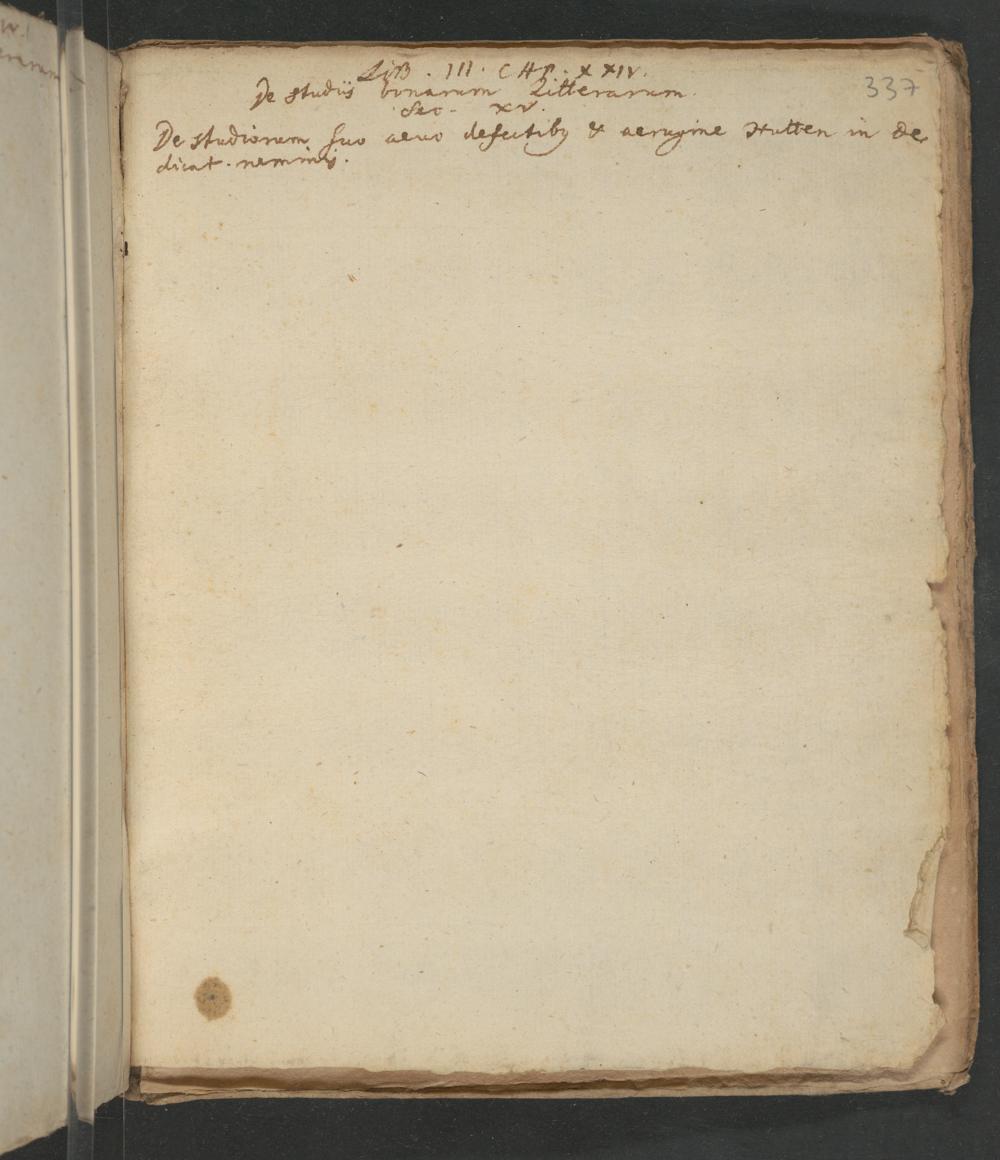 LIB. III. CAP. XXIV.
De studiis bonarum Litterarum. 337
Sec. XV.
De studiorum suo aevo defectibus & aerugine Hutten in de
dicat. neminis.